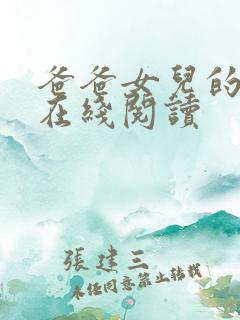 爸爸女兒的
在綫閱讀
張建三
未經同意禁止轉載